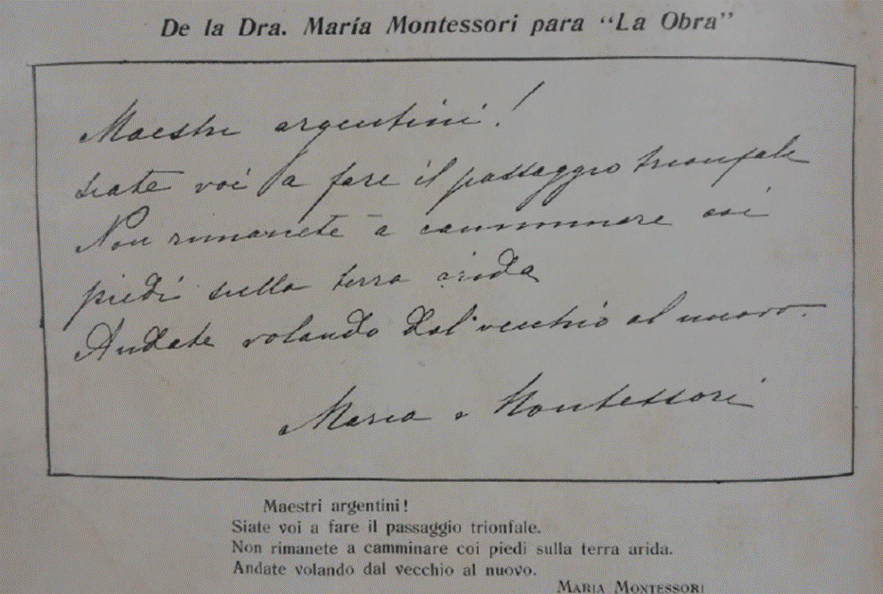 De la Dra. María Montessori para "La Obra"
Maestri argentini!
siate voi a fare il passaggio trionfale
Non rimanete a camminare coi
piedi sulla terra arida
Andate volando dal vecchio al nuovo.
Maria Montessori
Maestri argentini!
Siate voi a fare il passaggio trionfale.
Non rimanete a camminare coi piedi sulla terra arida.
Andate volando dal vecchio al nuovo.
MARIA MONTESSORI